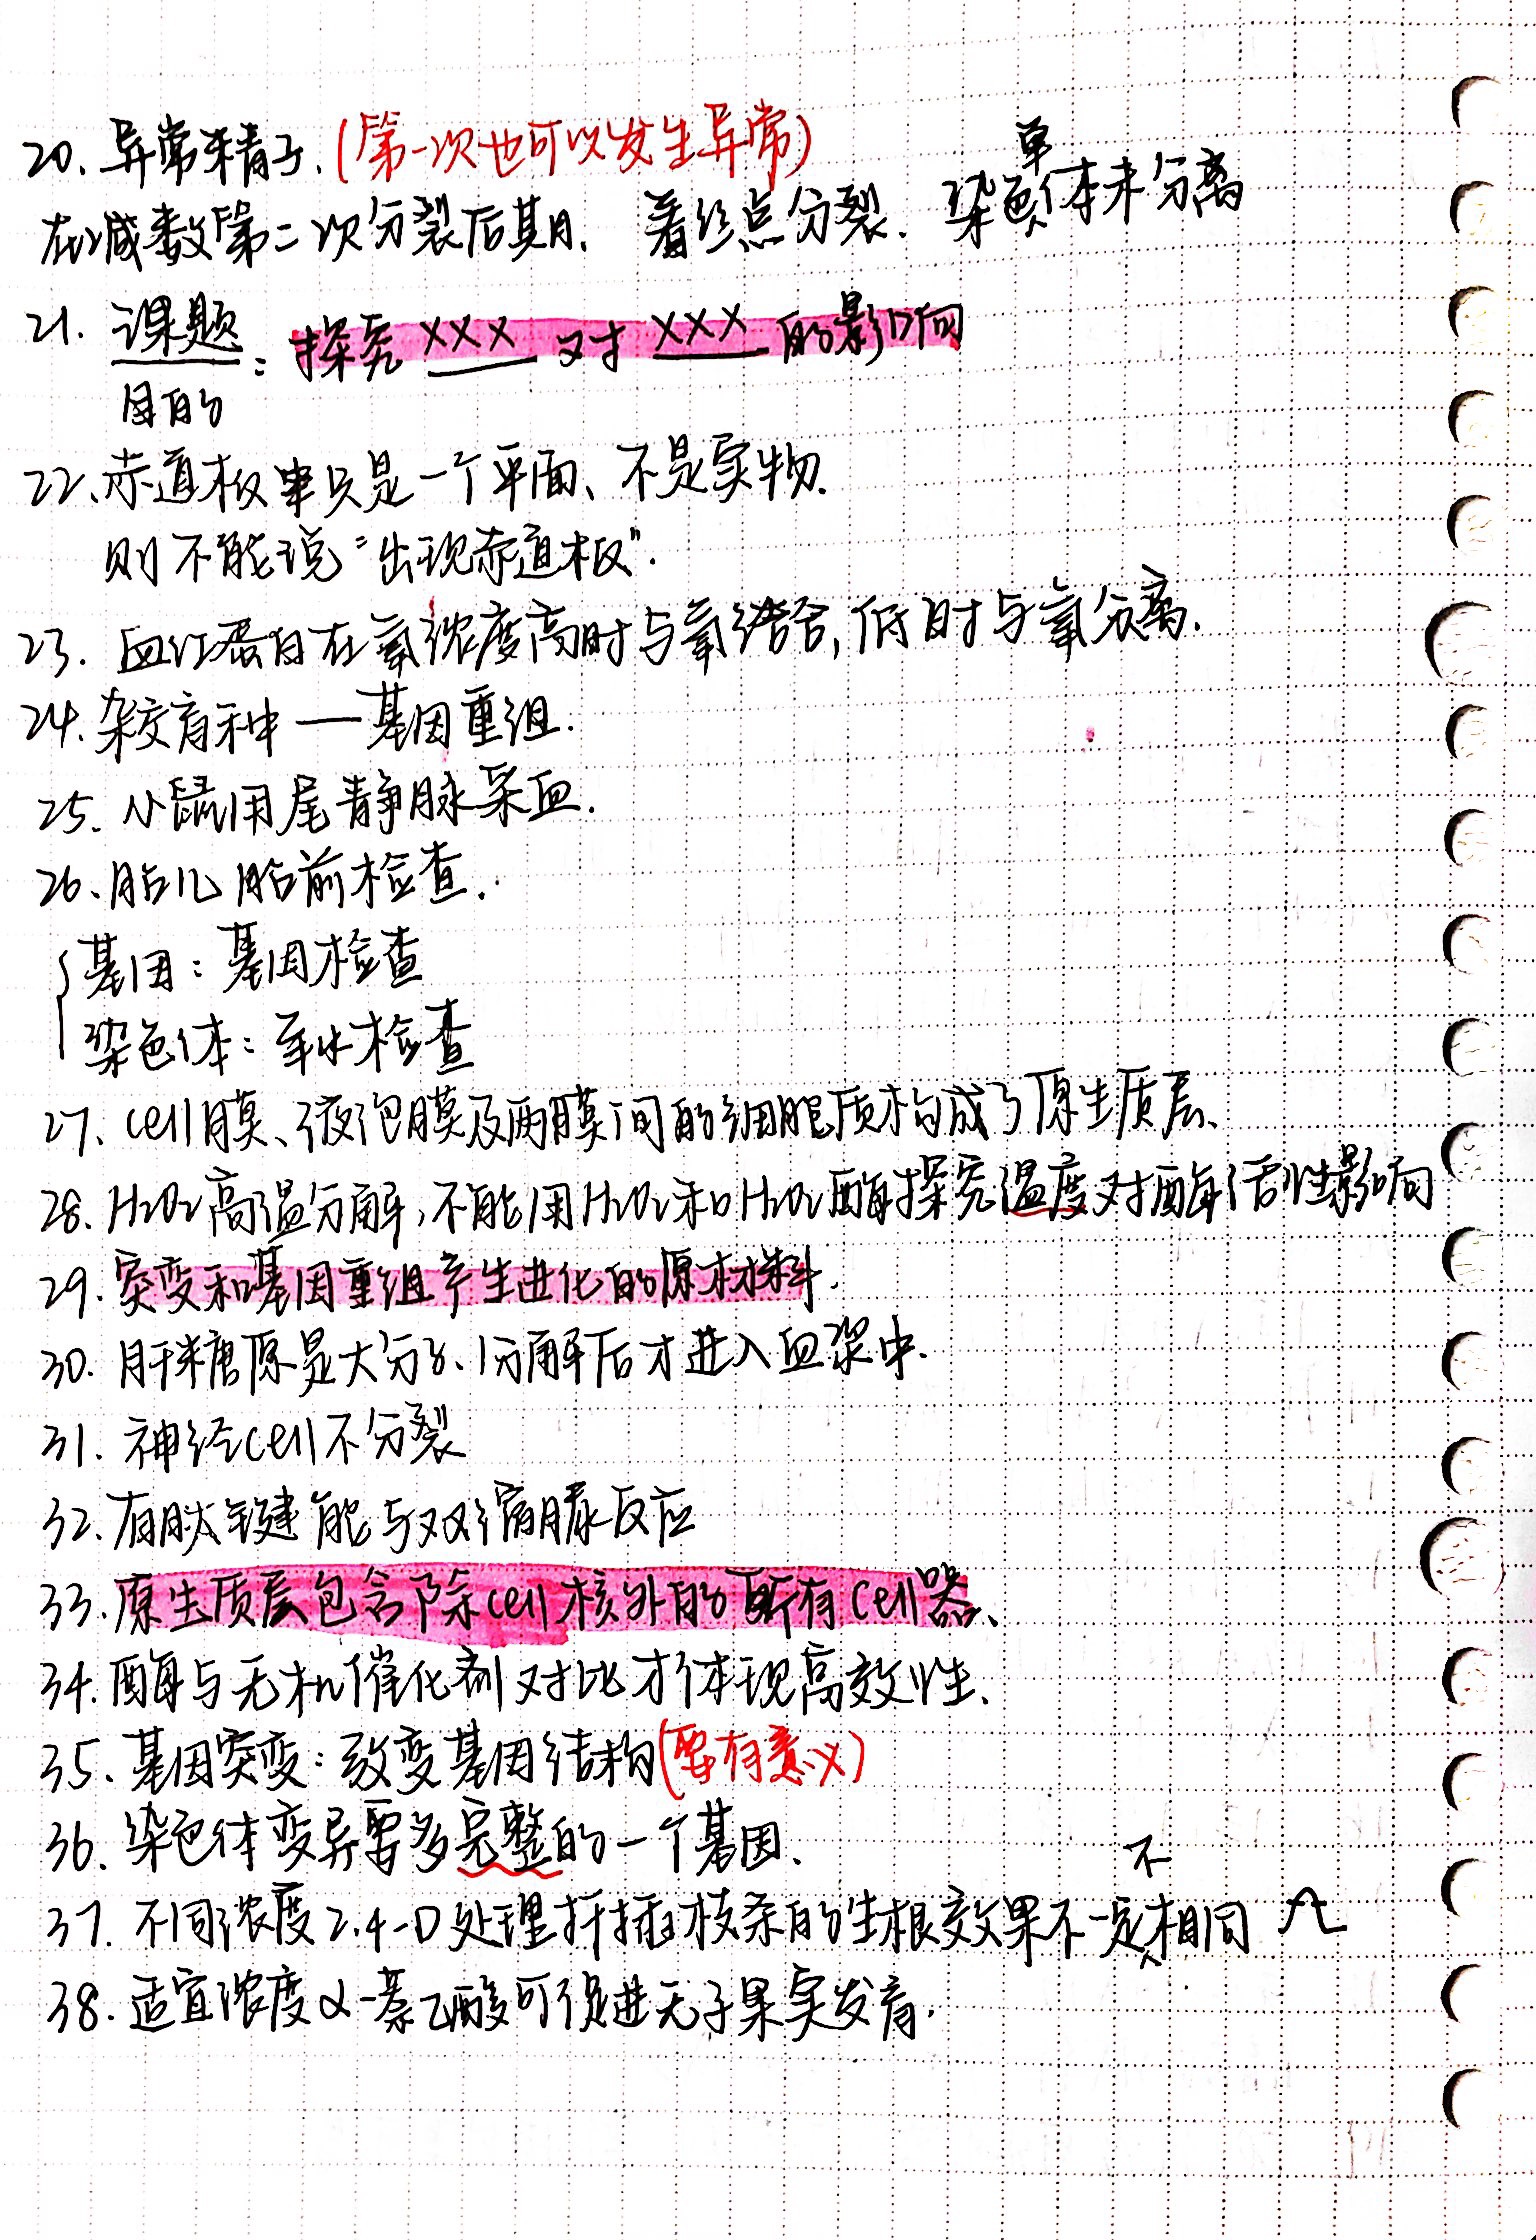 20. 异常精子.(第一次也可以发生异常)
在减数第二次分裂后期、着丝点分裂. 染色单体未分离
21. 课题: 探究 XXX 对 XXX 的影响
目的
22、赤道板只是一个平面、不是实物.
则不能说“出现赤道板”.
23. 血红蛋白在氧浓度高时与氧结合,低时与氧分离.
24. 杂交育种 — 基因重组.
25. 小鼠用尾静脉采血.
26、胎儿胎前检查.
基因: 基因检查
染色体: 羊水检查
27、cell膜、液泡膜及两膜间的细胞质构成了原生质层、
28. H2O2高温分解,不能用H2O2和H2O2酶探究温度对酶活性影响
29. 突变和基因重组产生进化的原材料.
30. 肝糖原是大分子、分解后才进入血浆中.
31. 神经cell不分裂
32. 有肽键能与双缩脲反应
33. 原生质层包含除cell核外的所有cell器、
34. 酶与无机催化剂对比才体现高效性、
35、基因突变: 改变基因结构(要有意义)
36、染色体变异要多完整的一个基因、
37. 不同浓度2.4-D处理扦插枝条的生根效果不一定不相同
38. 适宜浓度α-萘乙酸可促进无子果实发育.